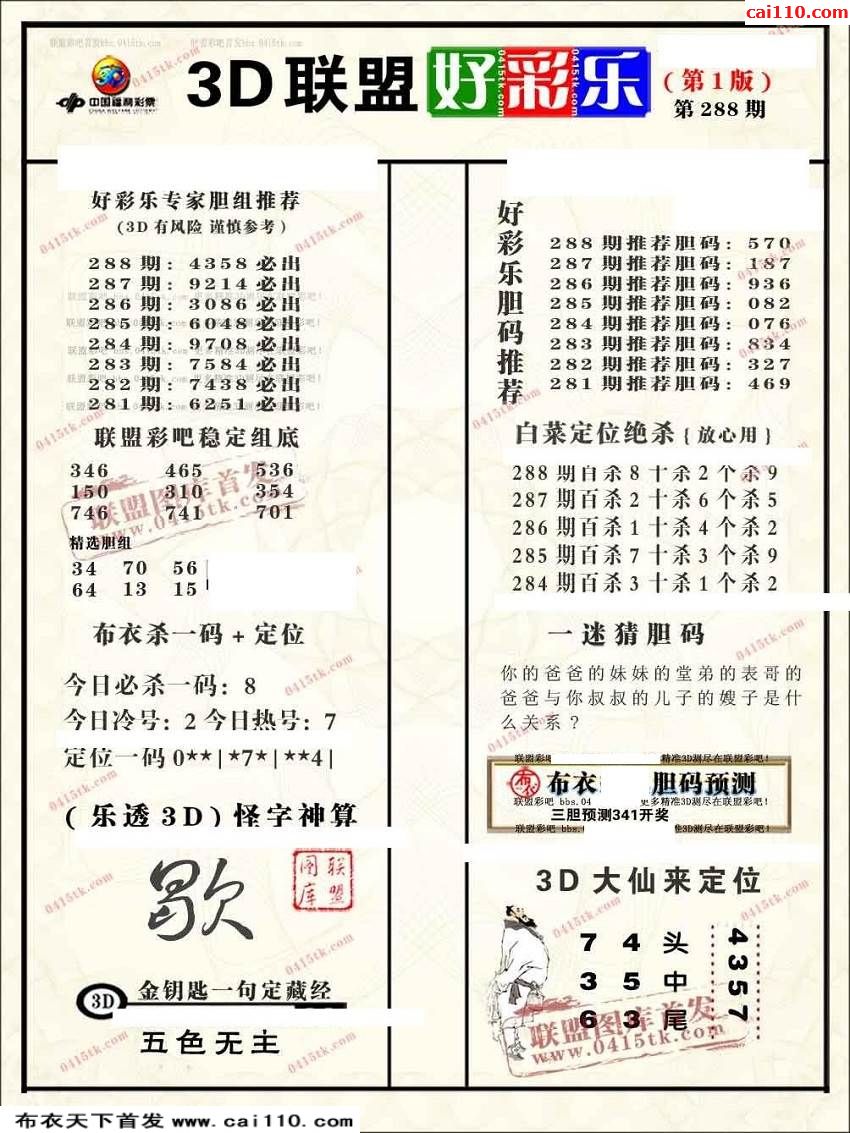 cai110.com
联盟彩吧首发bbs.0415tk.com
中国福利彩票
CHINA WELFARE LOTTERY
3D联盟好彩乐
0415tk.com
(第1版)
第288期
好彩乐专家胆组推荐
(3D有风险 谨慎参考)
288期: 4358必出
287期: 9214必出
286期: 3086必出
285期: 6048必出
284期: 9708必出
283期: 7584必出
282期: 7438必出
281期: 6251必出
联盟彩吧稳定组底
346 465 536
150 310 354
746 741 701
联盟图库首发
www.0415tk.com
精选胆组
34 70 56
64 13 15
布衣杀一码+定位
今日必杀一码: 8
今日冷号: 2 今日热号: 7
定位一码 0**|*7*|**4|
(乐透3D)怪字神算
歇
联盟图库
3D 金钥匙一句定藏经
五色无主
好彩乐胆码推荐
288期推荐胆码: 570
287期推荐胆码: 187
286期推荐胆码: 936
285期推荐胆码: 082
284期推荐胆码: 076
283期推荐胆码: 834
282期推荐胆码: 327
281期推荐胆码: 469
白菜定位绝杀{放心用}
288期百杀8十杀2个杀9
287期百杀2十杀6个杀5
286期百杀1十杀4个杀2
285期百杀7十杀3个杀9
284期百杀3十杀1个杀2
一迷猜胆码
你的爸爸的妹妹的堂弟的表哥的
爸爸与你叔叔的儿子的嫂子是什
么关系?
联盟彩 精准3D测尽在联盟彩吧!
布衣 布衣 胆码预测
联盟彩吧 bbs.04 更多精准3D测尽在联盟彩吧!
三胆预测341开奖
联盟彩吧 bbs.0 3D测尽在联盟彩吧!
3D大仙来定位
7 4 头
3 5 中
6 3 尾
4357
联盟图库首发
www.0415tk.com
布衣天下首发 www.cai110.com